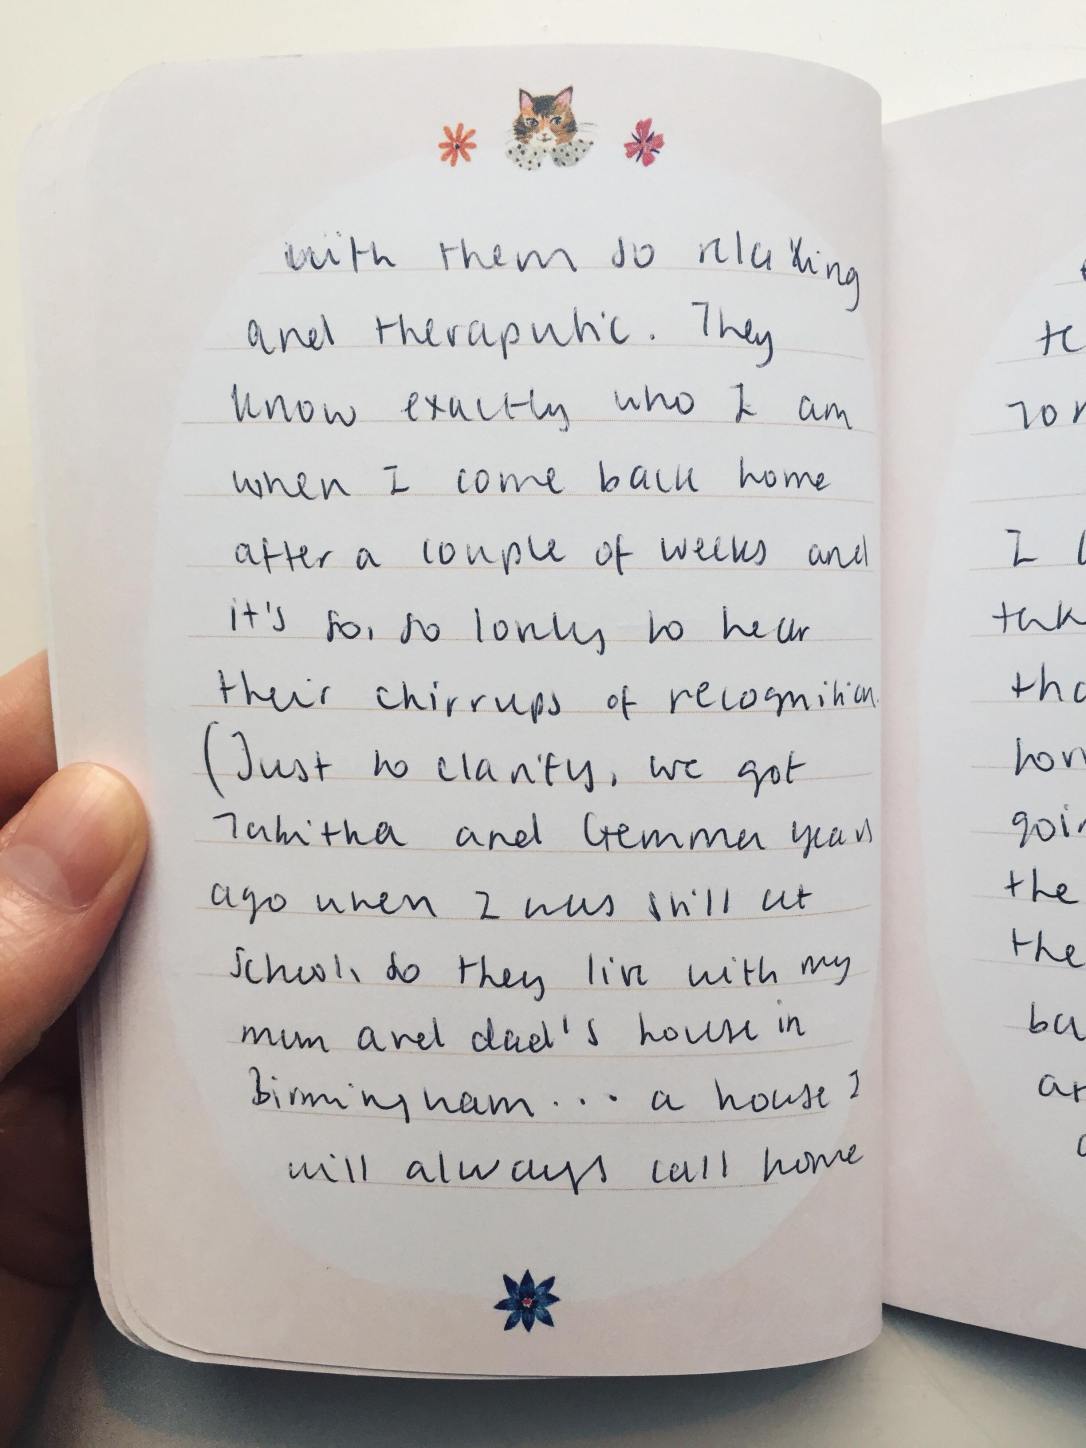 with them so relaxing
and theraputic. They
know exactly who I am
when I come back home
after a couple of weeks and
it's so, so lovely to hear
their chirrups of recognition.
(Just to clarify, we got
Tabitha and Gemma years
ago when I was still at
school, so they live with my
mum and dad's house in
Birmingham... a house I
will always call home
te
I
the
the